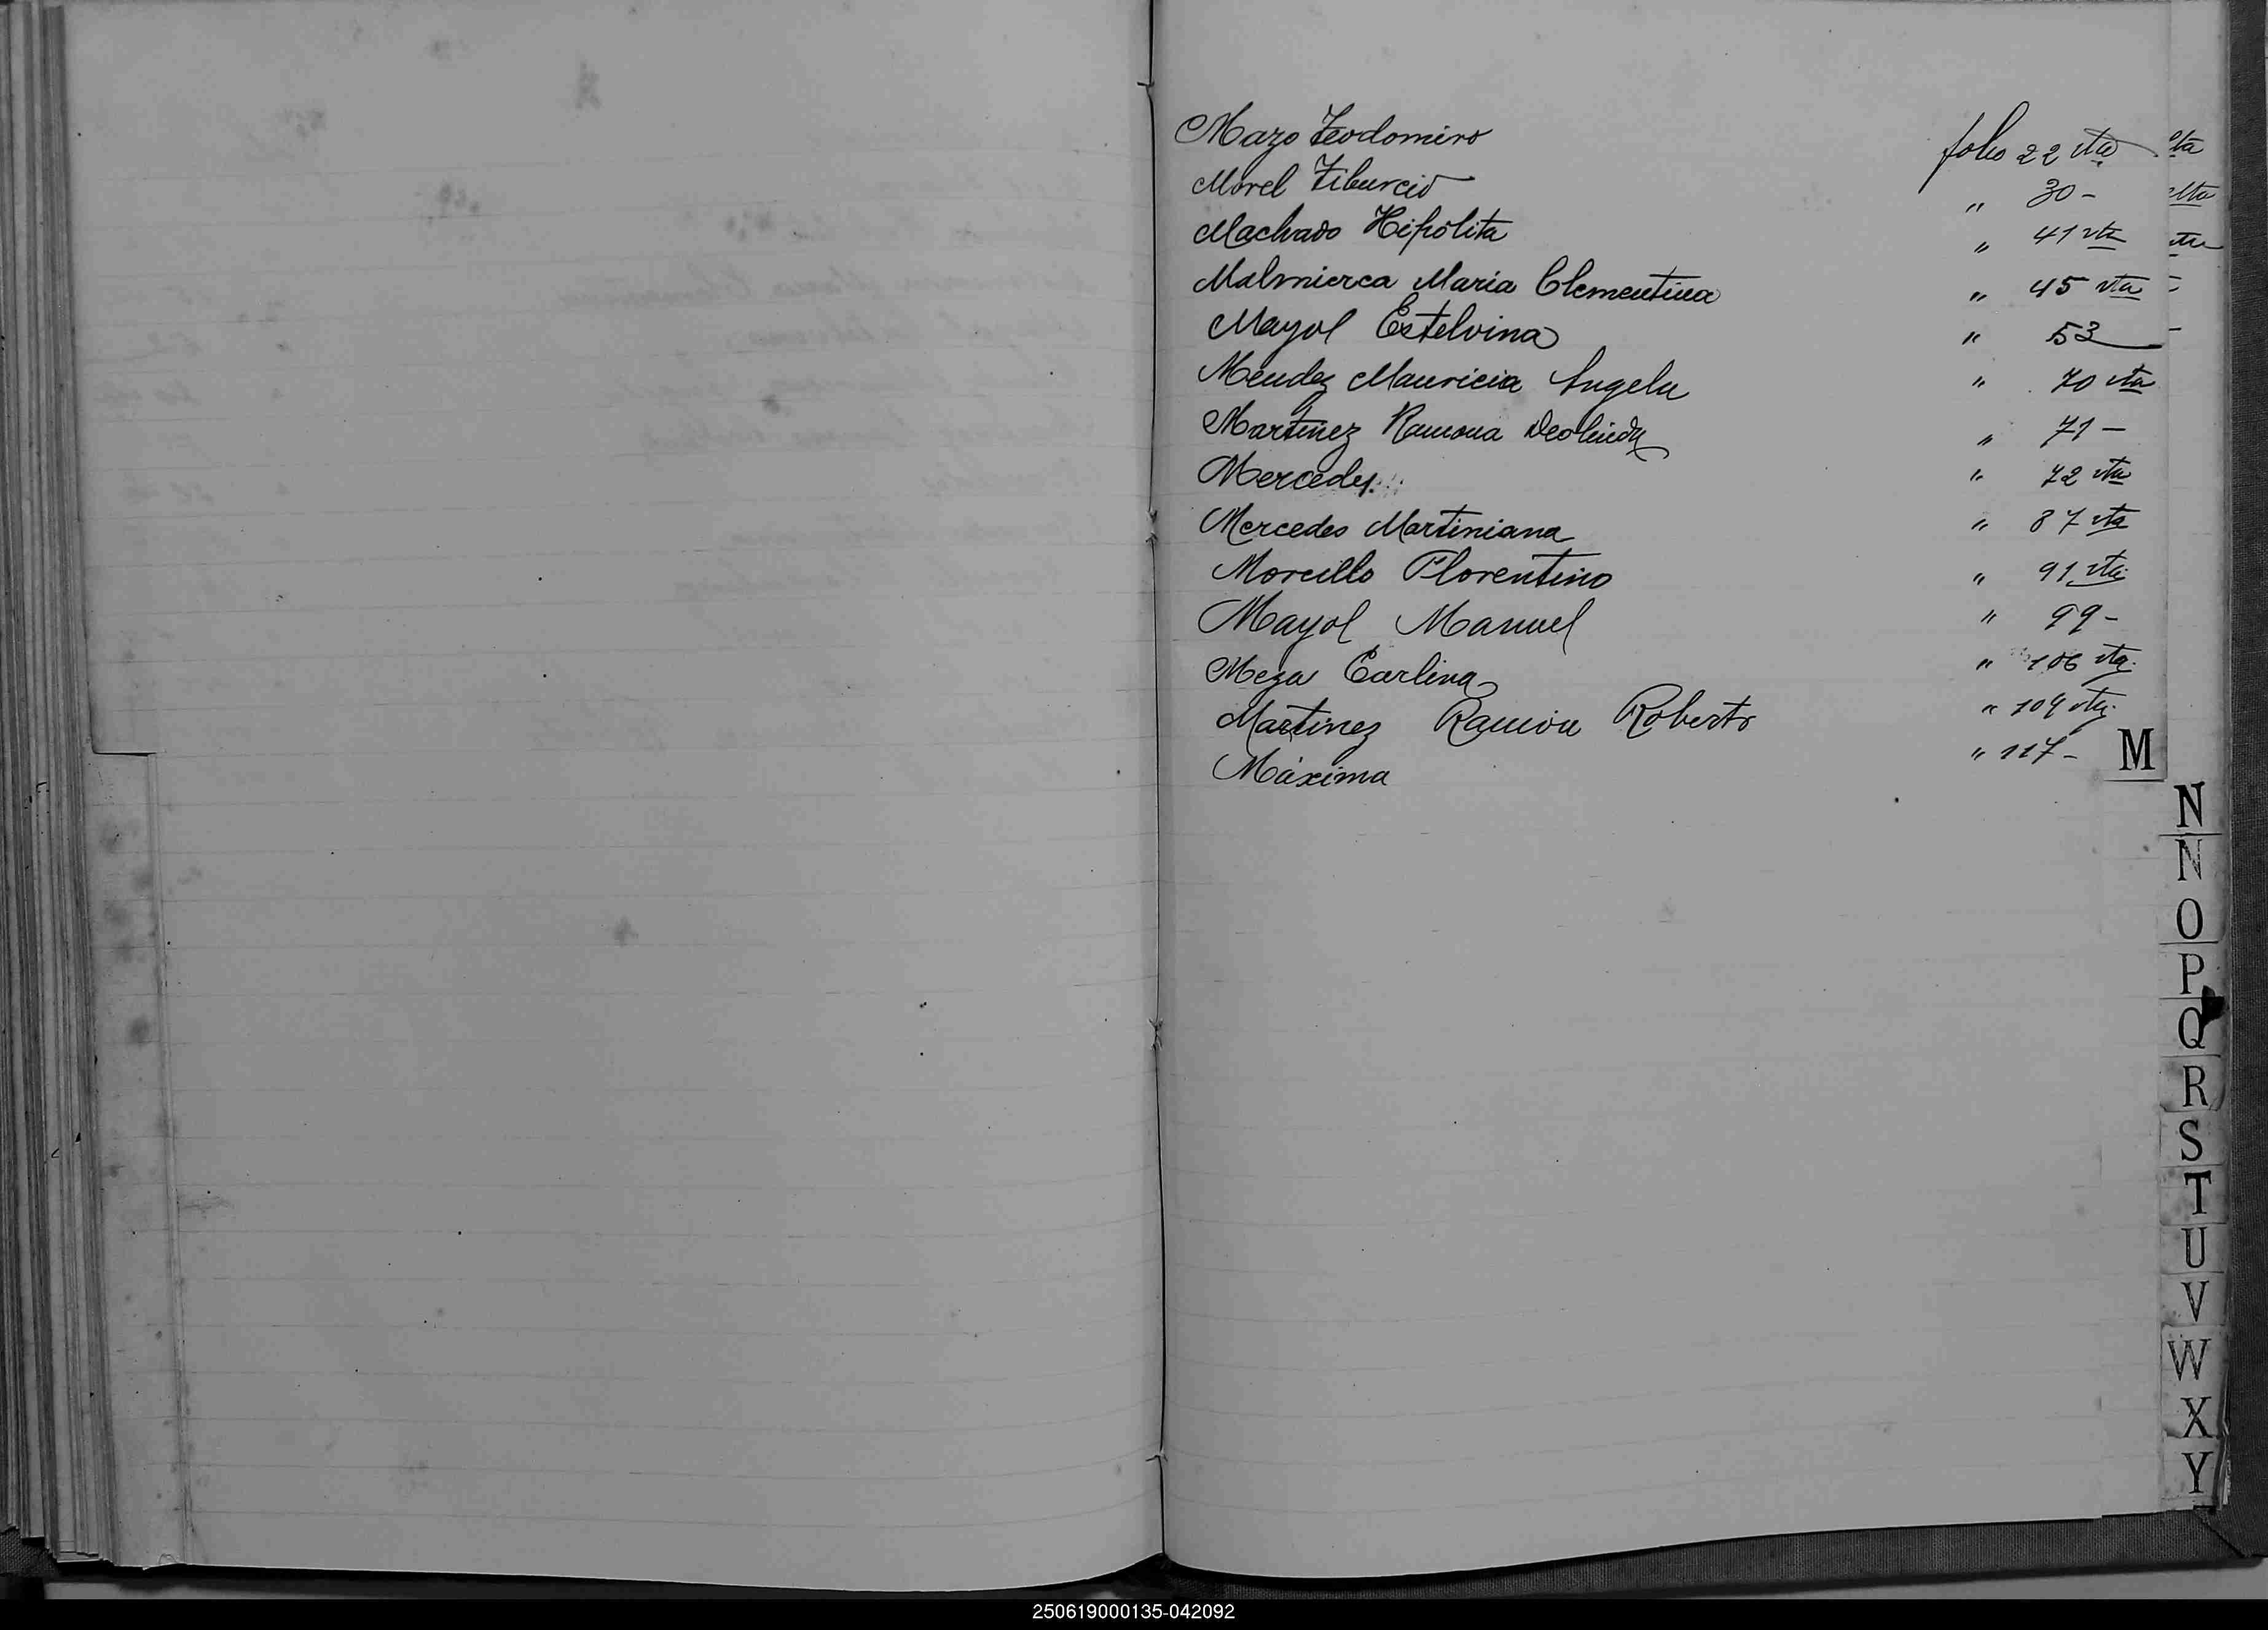 Mazo Teodomiro folio 22 vta
Morel Tiburcio " 30 -
Machado Hipólita " 41 vta
Malmierca Maria Clementina " 45 vta
Mayol Estelvina " 53
Mendez Mauricia Angela " 70 vta
Martinez Ramona Deolinda " 71 -
Mercedes. " 72 vta
Mercedes Martiniana " 87 vta
Morcillo Florentino " 91 vta
Mayol Manuel " 99 -
Meza Carlina " 106 vta.
Martinez Ramón Roberto " 109 vta.
Máxima " 117 -
M
N
N
O
P
Q
R
S
T
U
V
W
X
Y
250619000135-042092